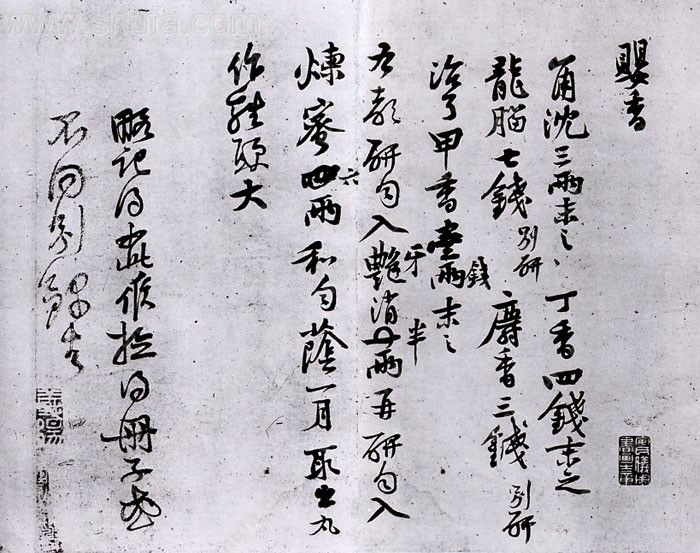 www.shufa.com
嬰香
角沈三兩末之丁香四錢末之
龍腦七錢別研麝香三錢別研
治了甲香壹兩錢末之
右都研勻入艷牙消半兩再研勻入
煉蜜四六兩和勻蔭一月取出丸
作雞頭大
略記得如此候檢得冊子或
不同別錄去